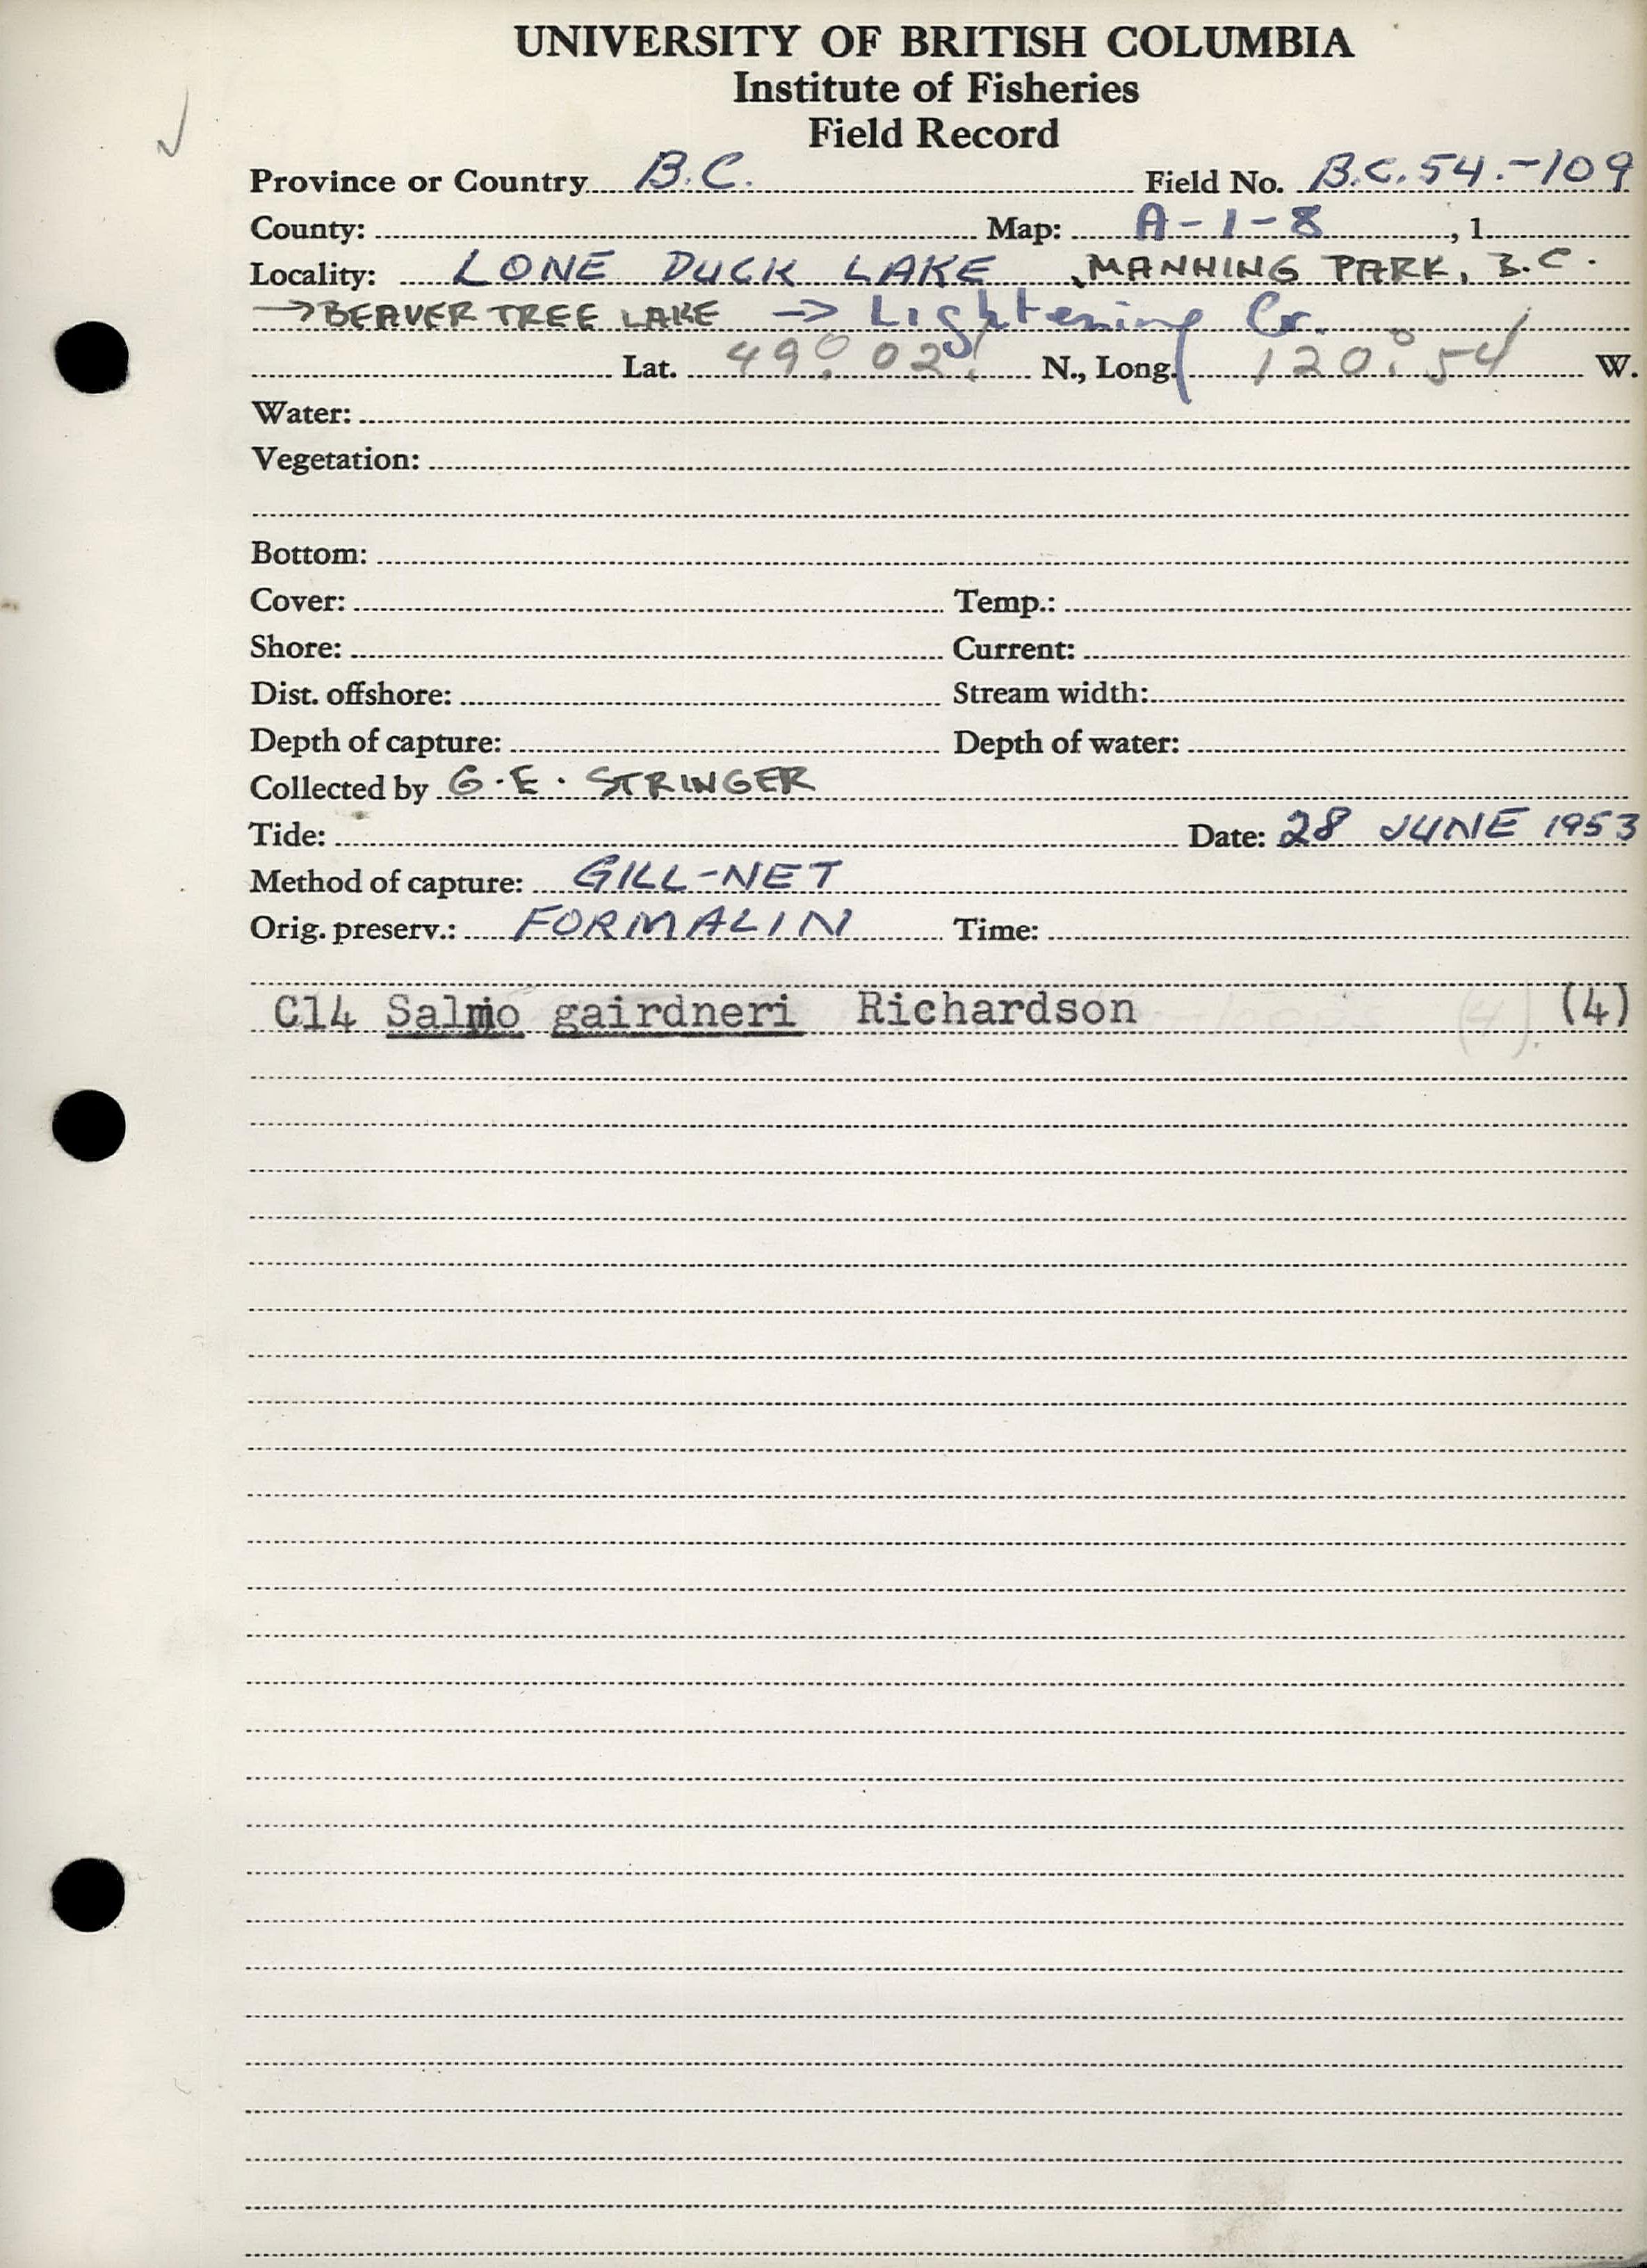 UNIVERSITY OF BRITISH COLUMBIA
Institute of Fisheries
Field Record
Province or Country B.C. Field No. B.C. 54.-109
County: Map: A-1-8 , 1
Locality: LONE DUCK LAKE , MANNING PARK, B.C.
→BEAVER TREE LAKE → Lightening Cr.
Lat. 49° 02' N., Long. 120° 54' W.
Water:
Vegetation:
Bottom:
Cover: Temp.:
Shore: Current:
Dist. offshore: Stream width:
Depth of capture: Depth of water:
Collected by G.E. STRINGER
Tide: Date: 28 JUNE 1953
Method of capture: GILL-NET
Orig. preserv.: FORMALIN Time:
C14 Salmo gairdneri Richardson (4) (4)